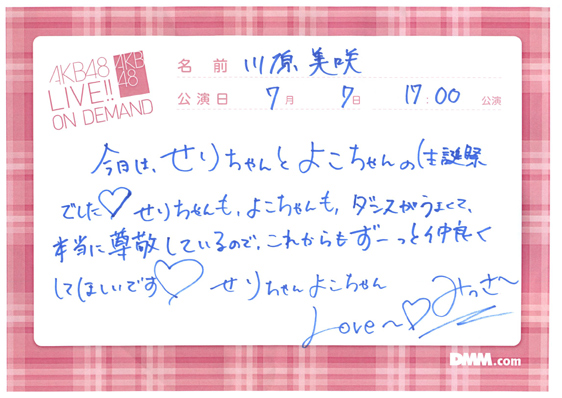 AKB48
LIVE!!
ON DEMAND
AKB
48
名前 川原美咲
公演日 7月 7日 17:00 公演
今日は、せりちゃんとよこちゃんの生誕祭
でした♡ せりちゃんも、よこちゃんも、ダンスがうまくて、
本当に尊敬しているので、これからもずーっと仲良く
してほしいです♡ せりちゃんよこちゃん
Love〜♡ みっさー
DMM.com